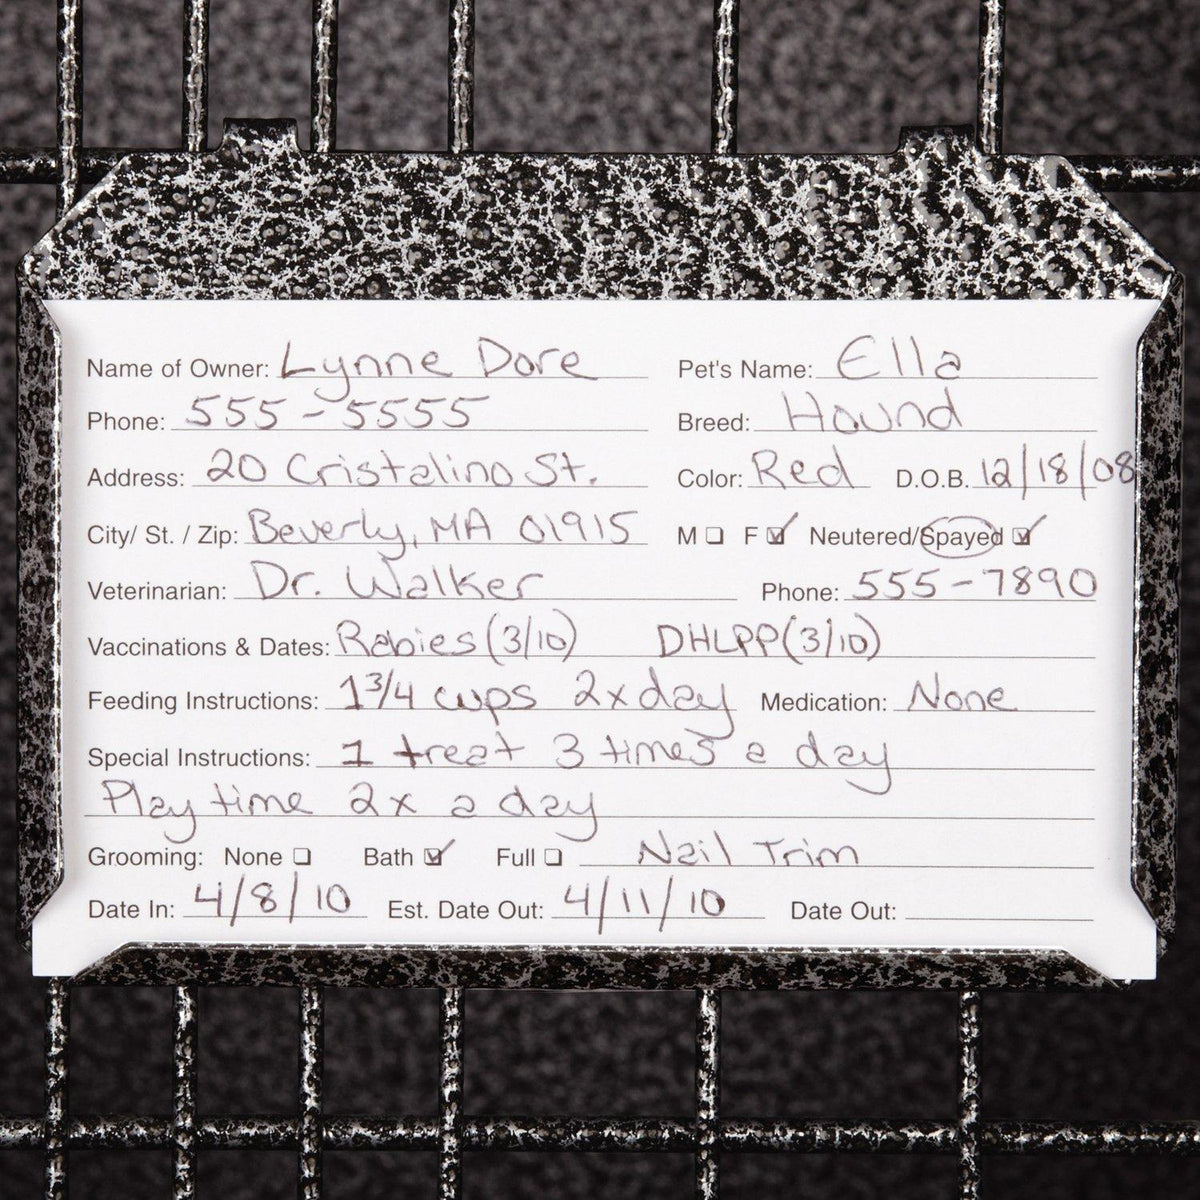 Name of Owner: Lynne Dore Pet's Name: Ella
Phone: 555-5555 Breed: Hound
Address: 20 Cristalino St. Color: Red D.O.B. 12/18/08
City/ St. / Zip: Beverly, MA 01915 M ❏ F ☑ Neutered/Spayed ☑
Veterinarian: Dr. Walker Phone: 555-7890
Vaccinations & Dates: Rabies (3/10) DHLPP (3/10)
Feeding Instructions: 1 3/4 cups 2x day Medication: None
Special Instructions: 1 treat 3 times a day
Play time 2x a day
Grooming: None ❏ Bath ☑ Full ❏ Nail Trim
Date In: 4/8/10 Est. Date Out: 4/11/10 Date Out: